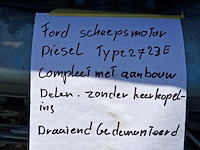 Ford scheepsmotor
Diesel Type 2723E
Compleet met aanbouw
Delen. zonder keerkopel-
ing
Draaiend Gedemonteerd